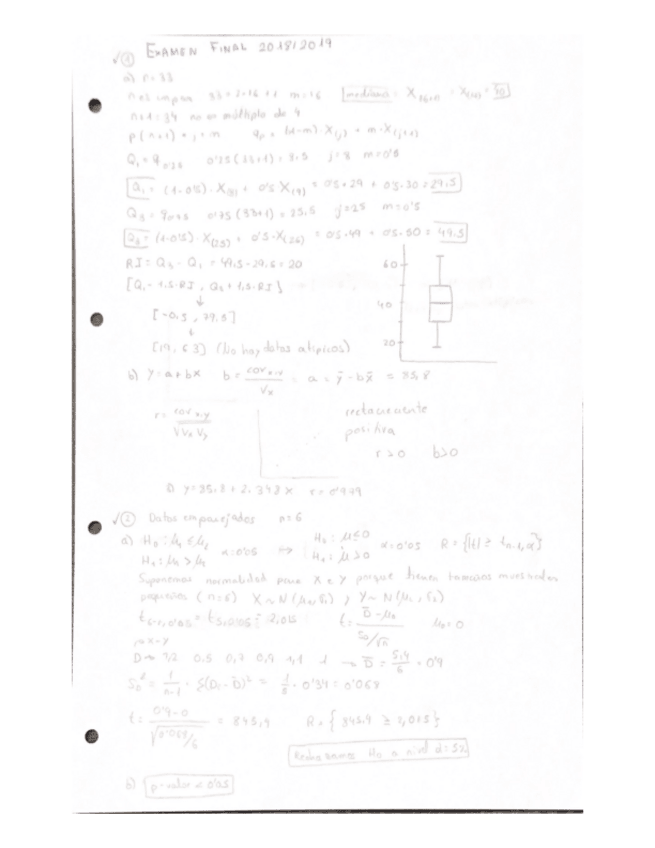 EXAMEN FINAL 2018/2019
√①
a) n=33
n es impar 33=2·16+1 m=16 mediana = X(16+1) = X(17) = 40
n+1=34 no es múltiplo de 4
p(n+1)=j+m qp = (1-m)·X(j) + m·X(j+1)
Q₁=q0'25 0'25(33+1)=8,5 j=8 m=0'5
Q₁= (1-0'5)·X(8) + 0'5 X(9) = 0'5·29 + 0'5·30 = 29,5
Q₃ = q0'75 0'75(33+1)=25,5 j=25 m=0'5
Q₃= (1-0'5)·X(25) + 0'5·X(26) = 0'5·49 + 0'5·50 = 49,5
RI = Q₃ - Q₁ = 49,5-29,5=20
[Q₁-1,5·RI, Q₃+1,5·RI]
↓
[-0,5, 79,5]
↓
[19, 63] (No hay datos atípicos)
60
40
20
b) y=a+bx b = cov x,y / Vx = a = ȳ - bx̄ = 35,8
r = cov x,y / √Vx Vy
positiva
r>0 b>0
y=35,8+2,348x r=0'979
√② Datos emparejados n=6
a) H₀: μ₁ ≤ μ₂ α=0'05 ⟹ H₀: μ≤0 α=0'05 R={|t| ≥ tn-1,α}
H₁: μ₁ > μ₂ H₁: μ>0
Suponemos normalidad para X e Y porque tienen tamaños muestrales
pequeños (n=6) X~N(μ₁,σ₁), Y~N(μ₂,σ₂)
= t5,0'05 = 2,015 t = D̄ - μ₀ / S_D/√n μ₀=0
X-Y
D→ 1,2 0,5 0,7 0,9 1,1 1 → D̄ = 5,4/6 = 0'9
S_D² = 1/n-1 · Σ(Di - D̄)² = 1/5 · 0'34 = 0'068
t = 0'9-0 / √0'068/6 = 845,4 R={845,4 ≥ 2,015}
Rechazamos H₀ a nivel α=5%
b) p-valor < 0'05